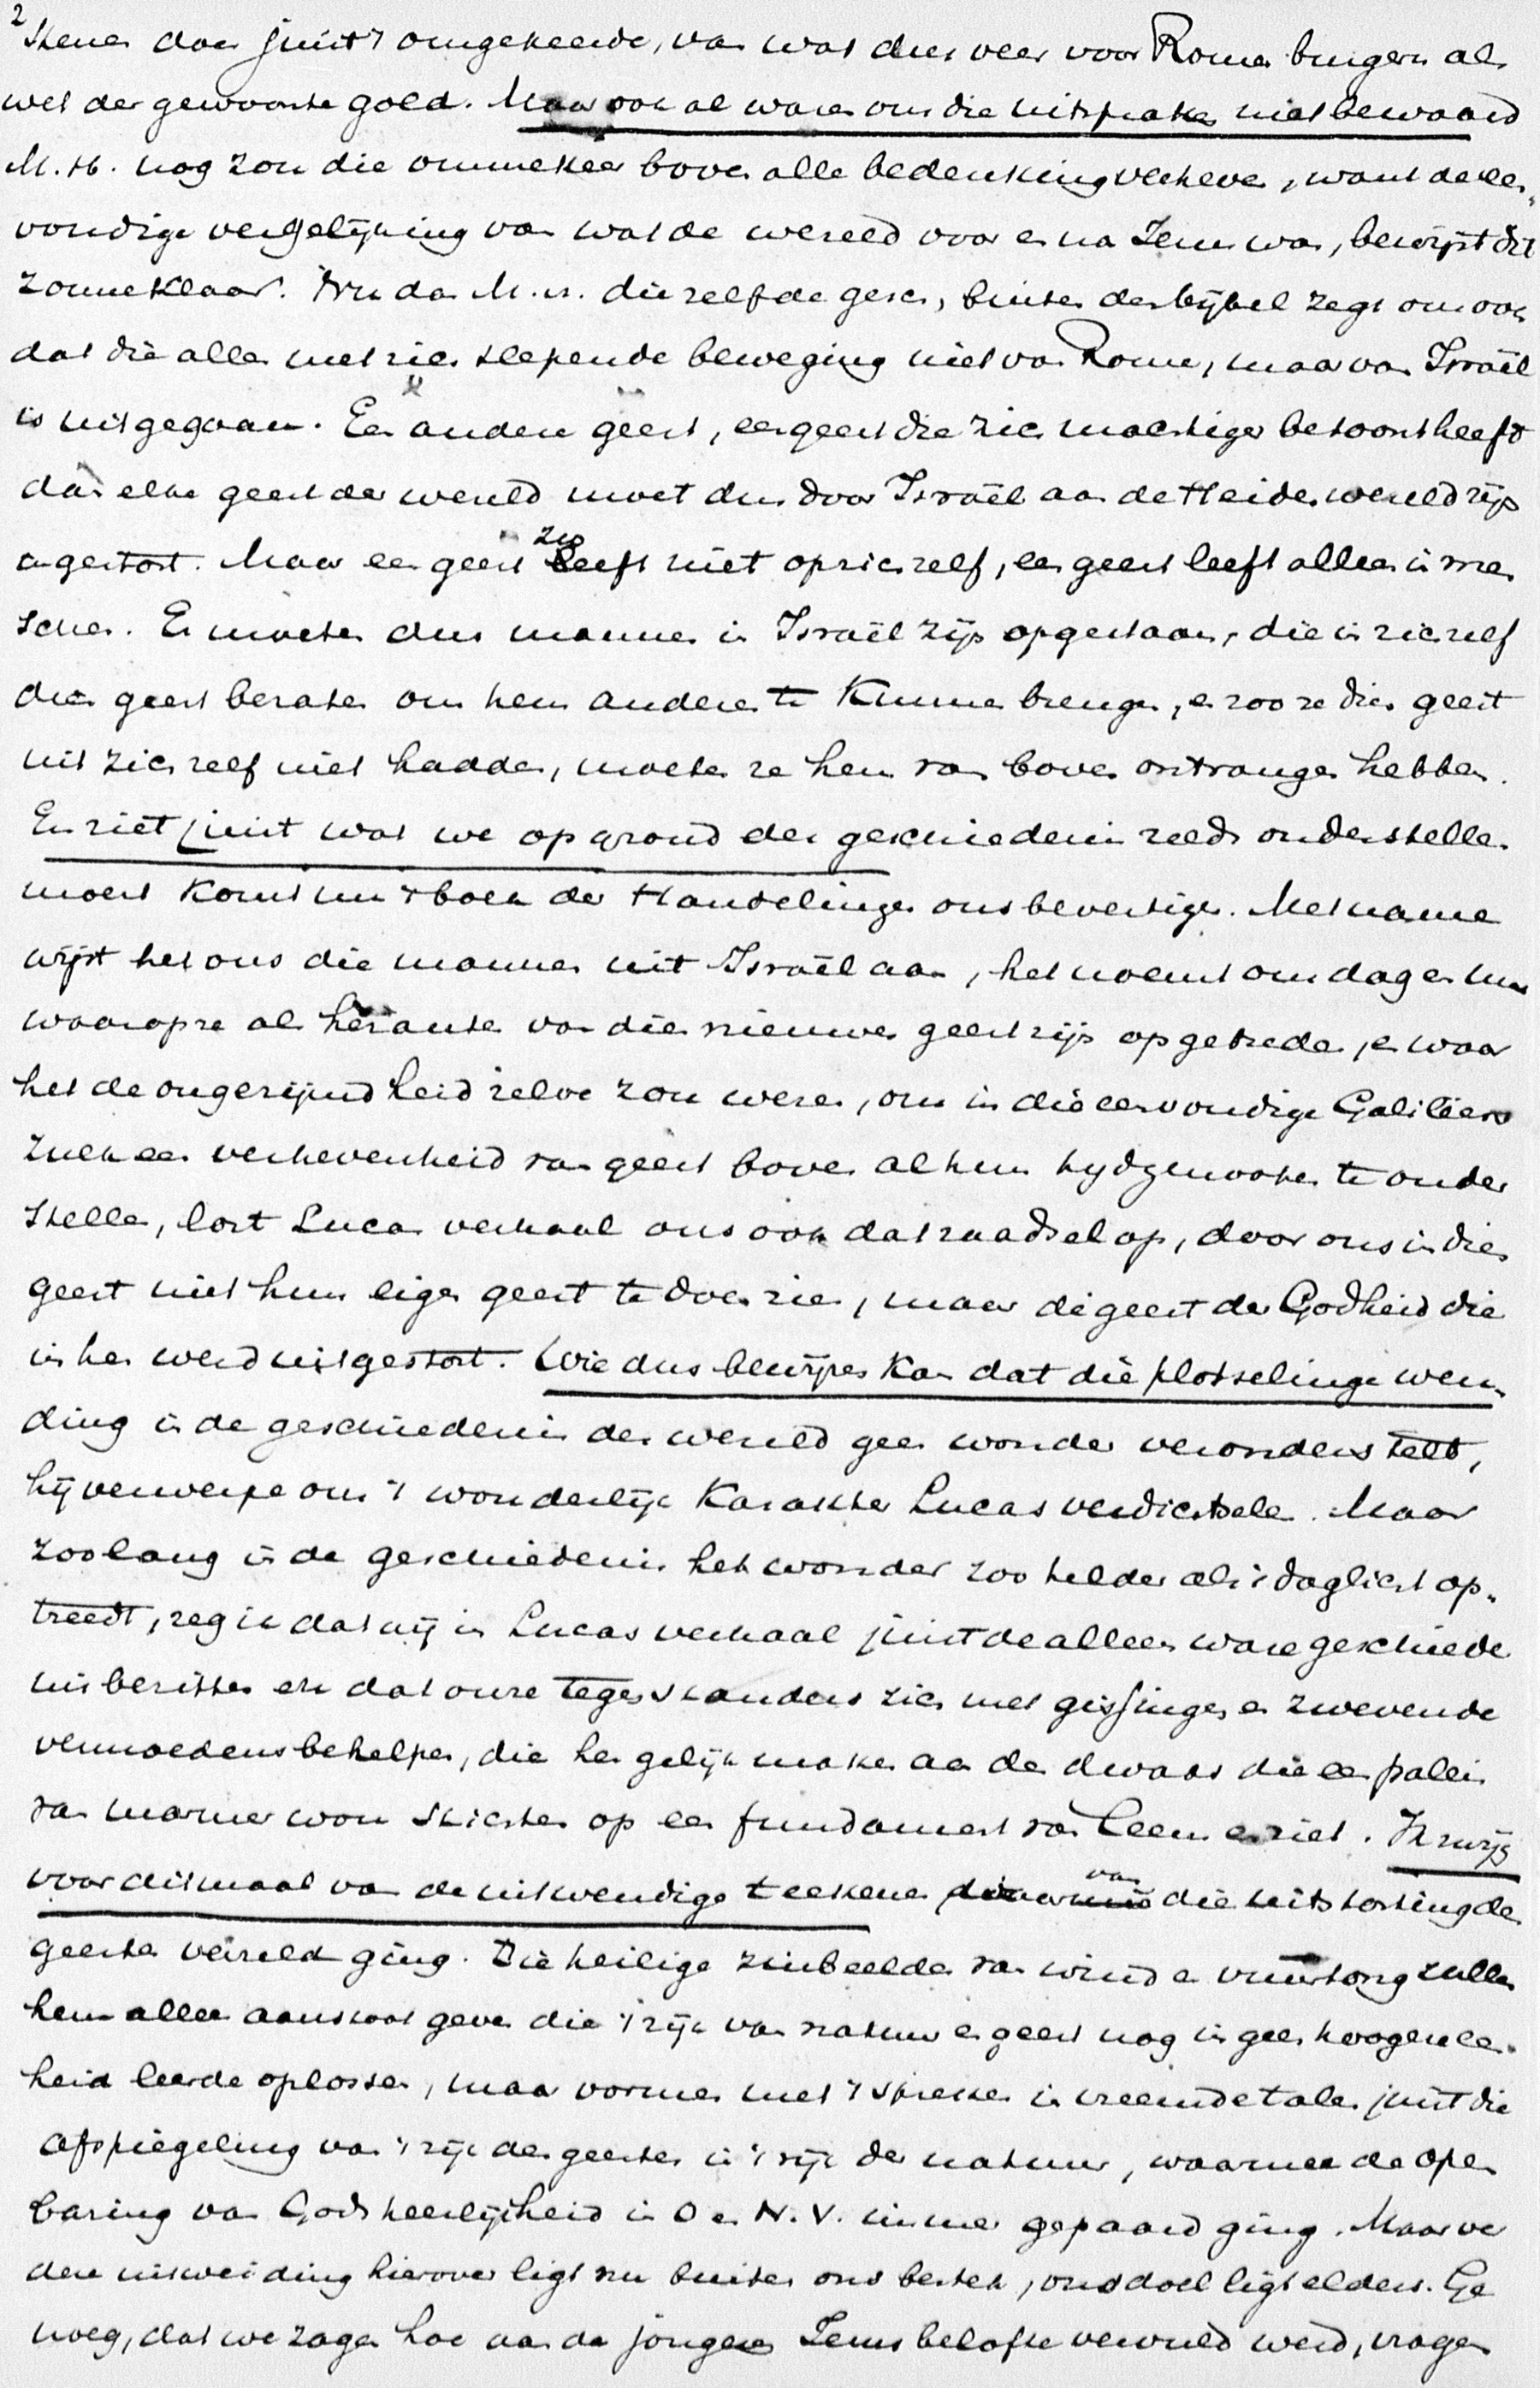 2
stenen dan juist 't omgekeerde, van wat dus veer voor Romes burgers als
wet der gewoonte gold. Maar ook al waren ons die uitspraken niet bewaard
M. H. nog zou die ommekeer boven alle bedenking verheven, want de een„
voudige vergelijking van wat de wereld voor en na Jezus was, bewijst dit
zonneklaar. Nu dan M. H. diezelfde gesch, buiten den bijbel zegt ons ook
dat die alles met zich slepende beweging niet van Rome, maar van Israël
is uitgegaan. Een andere geest, een geest die zich machtiger betoont heeft
dan elke geest der wereld moet dus door Israël aan de Heidenwereld zijn
ingestort. Maar een geest leeft niet op zich zelf, een geest leeft alleen in men
schen. Er moeten dus mannen in Israël zijn opgestaan, die in zich zelf
dien geest bezaten om hem anderen te kunnen brengen, en zoo ze dien geest
uit zich zelf niet hadden, moeten ze hem van boven ontvangen hebben.
En ziet juist wat we op grond der geschiedenis reeds onderstellen
moest komt nu 't boek der Handelingen ons bevestigen. Met name
wijst het ons die mannen uit Israël aan, het noemt ons dag en uur
waarop ze als herauten van dien nieuwen geest zijn opgetreden, en waar
het de ongerijmdheid zelve zou wezen, om in die eenvoudige Galileers
zulk een verhevenheid van geest boven al hun tydgenooten te onder
stellen, lost Lucas verhaal ons ook dat raadsel op, door ons in dien
geest niet hun eigen geest te doen zien, maar de geest der Godheid die
in hen werd uitgestort. Wie dus bewijzen kan dat die plotselinge wen„
ding in de geschiedenis der wereld geen wonder veronderstelt,
hij verwerpe om 't wonderlijk karakter Lucas verdichtselen. Maar
zoolang in de geschiedenis het wonder zoo helder als 't daglicht op„
treedt, zeg ik dat wij in Lucas verhaal juist de alleen ware geschiede
nis bezitten en dat onze tegenstanders zich met gissingen en zwevende
vermoedens behelpen, die hen gelijk maken aan den dwaas die een paleis
van marmer wou stichten op een fundament van leem en riet. Ik zwijg
voor ditmaal van de uitwendige teekenen van die uitstorting des
geestes verzeld ging. Die heilige zinbeelden van wind en vuurtong zullen
hem alleen aanstoot geven die 't rijk van natuur en geest nog in geen hoogere een„
heid leerde oplossen, maar vormen met 't spreken in vreemde talen juist die
afspiegeling van 't rijk des geestes in 't rijk der natuur, waarmee de open
baring van Gods heerlijkheid in O en N. V. immer gepaard ging. Maar ver
dere uitweiding hierover ligt nu buiten ons bestek, ons doel ligt elders. Ge
noeg, dat we zagen hoe aan de jongeren Jezus belofte vervuld werd, vragen